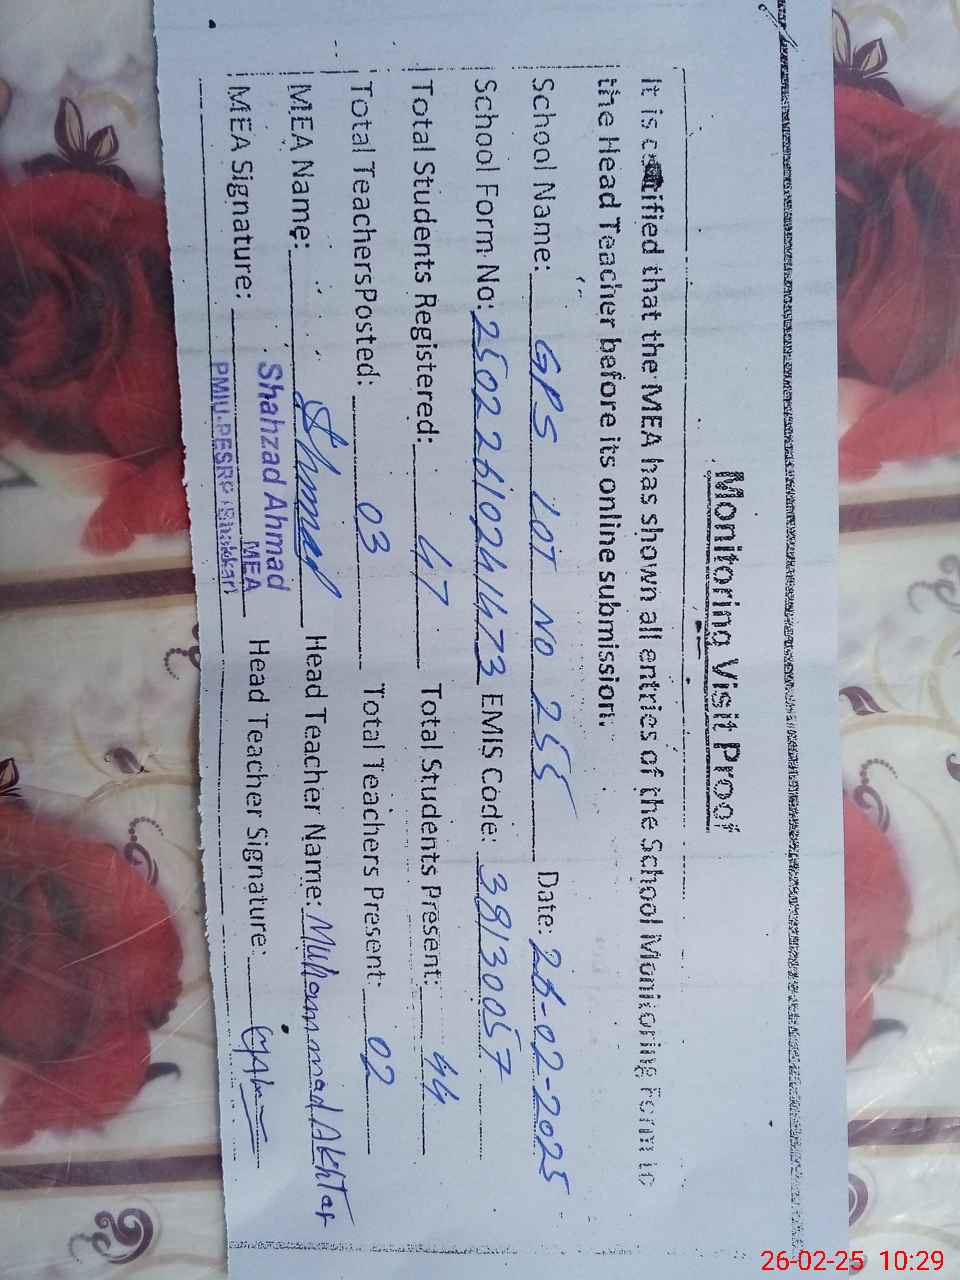 Monitoring Visit Proof
It is certified that the MEA has shown all entries of the School Monitoring Form to
the Head Teacher before its online submission.
School Name: GPS LOT NO 255 Date: 26-02-2025
School Form No: 250226102441473 EMIS Code: 38130057
Total Students Registered: 47 Total Students Present: 44
Total Teachers Posted: 03 Total Teachers Present: 02
MEA Name: Ahmad Head Teacher Name: Muhammad Akhtar
MEA Signature: Head Teacher Signature:
Shahzad Ahmad
MEA
PMIU-PESRP (Bhakkar)
26-02-25 10:29